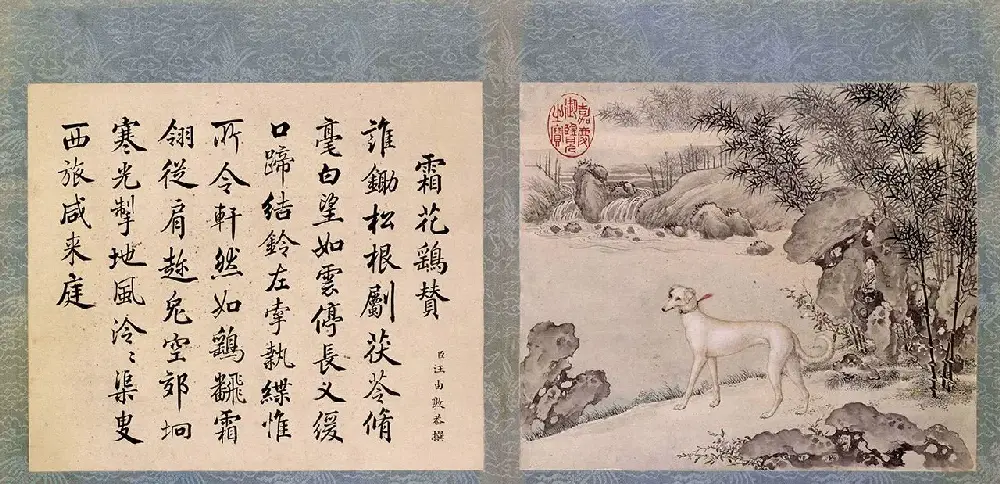 霜花鷂賛
臣汪由敦恭撰
誰鋤松根斸茯苓脩
毫白望如雲停長义緩
口蹄結鈴左牽執緤惟
所令軒然如鷂飜霜
翎從肩趂兔空郊坰
寒光掣地風泠〻渠叟
西旅咸来庭
嘉慶
御覽
之寶